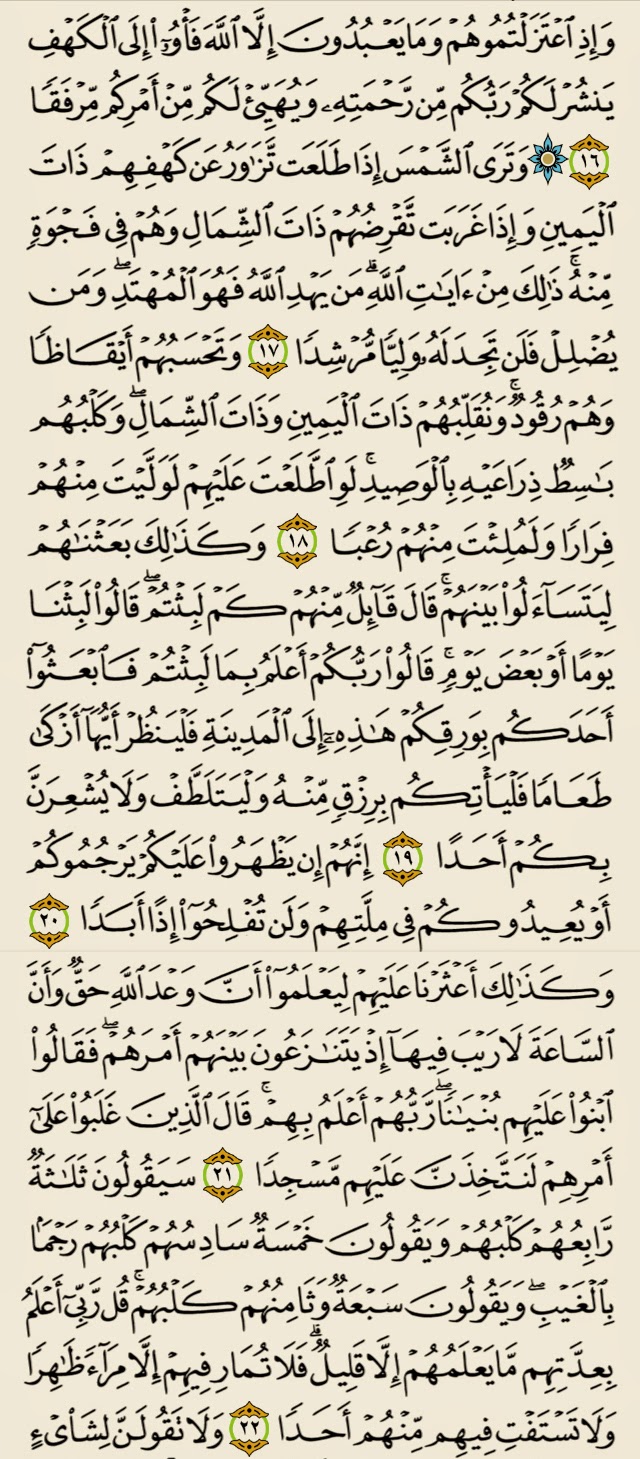 وَإِذِ ٱعۡتَزَلۡتُمُوهُمۡ وَمَا يَعۡبُدُونَ إِلَّا ٱللَّهَ فَأۡوُۥٓاْ إِلَى ٱلۡكَهۡفِ
يَنشُرۡ لَكُمۡ رَبُّكُم مِّن رَّحۡمَتِهِۦ وَيُهَيِّئۡ لَكُم مِّنۡ أَمۡرِكُم مِّرۡفَقٗا
١٦ وَتَرَى ٱلشَّمۡسَ إِذَا طَلَعَت تَّزَٰوَرُ عَن كَهۡفِهِمۡ ذَاتَ
ٱلۡيَمِينِ وَإِذَا غَرَبَت تَّقۡرِضُهُمۡ ذَاتَ ٱلشِّمَالِ وَهُمۡ فِي فَجۡوَةٖ
مِّنۡهُۚ ذَٰلِكَ مِنۡ ءَايَٰتِ ٱللَّهِۗ مَن يَهۡدِ ٱللَّهُ فَهُوَ ٱلۡمُهۡتَدِۖ وَمَن
يُضۡلِلۡ فَلَن تَجِدَ لَهُۥ وَلِيّٗا مُّرۡشِدٗا ١٧ وَتَحۡسَبُهُمۡ أَيۡقَاظٗا
وَهُمۡ رُقُودٞۚ وَنُقَلِّبُهُمۡ ذَاتَ ٱلۡيَمِينِ وَذَاتَ ٱلشِّمَالِۖ وَكَلۡبُهُم
بَٰسِطٞ ذِرَاعَيۡهِ بِٱلۡوَصِيدِۚ لَوِ ٱطَّلَعۡتَ عَلَيۡهِمۡ لَوَلَّيۡتَ مِنۡهُمۡ
فِرَارٗا وَلَمُلِئۡتَ مِنۡهُمۡ رُعۡبٗا ١٨ وَكَذَٰلِكَ بَعَثۡنَٰهُمۡ
لِيَتَسَآءَلُواْ بَيۡنَهُمۡۚ قَالَ قَآئِلٞ مِّنۡهُمۡ كَمۡ لَبِثۡتُمۡۖ قَالُواْ لَبِثۡنَا
يَوۡمًا أَوۡ بَعۡضَ يَوۡمٖۚ قَالُواْ رَبُّكُمۡ أَعۡلَمُ بِمَا لَبِثۡتُمۡ فَٱبۡعَثُوٓاْ
أَحَدَكُم بِوَرِقِكُمۡ هَٰذِهِۦٓ إِلَى ٱلۡمَدِينَةِ فَلۡيَنظُرۡ أَيُّهَآ أَزۡكَىٰ
طَعَامٗا فَلۡيَأۡتِكُم بِرِزۡقٖ مِّنۡهُ وَلۡيَتَلَطَّفۡ وَلَا يُشۡعِرَنَّ
بِكُمۡ أَحَدًا ١٩ إِنَّهُمۡ إِن يَظۡهَرُواْ عَلَيۡكُمۡ يَرۡجُمُوكُمۡ
أَوۡ يُعِيدُوكُمۡ فِي مِلَّتِهِمۡ وَلَن تُفۡلِحُوٓاْ إِذًا أَبَدٗا ٢٠
وَكَذَٰلِكَ أَعۡثَرۡنَا عَلَيۡهِمۡ لِيَعۡلَمُوٓاْ أَنَّ وَعۡدَ ٱللَّهِ حَقّٞ وَأَنَّ
ٱلسَّاعَةَ لَا رَيۡبَ فِيهَآ إِذۡ يَتَنَٰزَعُونَ بَيۡنَهُمۡ أَمۡرَهُمۡۖ فَقَالُواْ
ٱبۡنُواْ عَلَيۡهِم بُنۡيَٰنٗاۖ رَّبُّهُمۡ أَعۡلَمُ بِهِمۡۚ قَالَ ٱلَّذِينَ غَلَبُواْ عَلَىٰٓ
أَمۡرِهِمۡ لَنَتَّخِذَنَّ عَلَيۡهِم مَّسۡجِدٗا ٢١ سَيَقُولُونَ ثَلَٰثَةٞ
رَّابِعُهُمۡ كَلۡبُهُمۡ وَيَقُولُونَ خَمۡسَةٞ سَادِسُهُمۡ كَلۡبُهُمۡ رَجۡمَۢا
بِٱلۡغَيۡبِۖ وَيَقُولُونَ سَبۡعَةٞ وَثَامِنُهُمۡ كَلۡبُهُمۡۚ قُل رَّبِّيٓ أَعۡلَمُ
بِعِدَّتِهِم مَّا يَعۡلَمُهُمۡ إِلَّا قَلِيلٞۗ فَلَا تُمَارِ فِيهِمۡ إِلَّا مِرَآءٗ ظَٰهِرٗا
وَلَا تَسۡتَفۡتِ فِيهِم مِّنۡهُمۡ أَحَدٗا ٢٢ وَلَا تَقُولَنَّ لِشَاْيۡءٍ